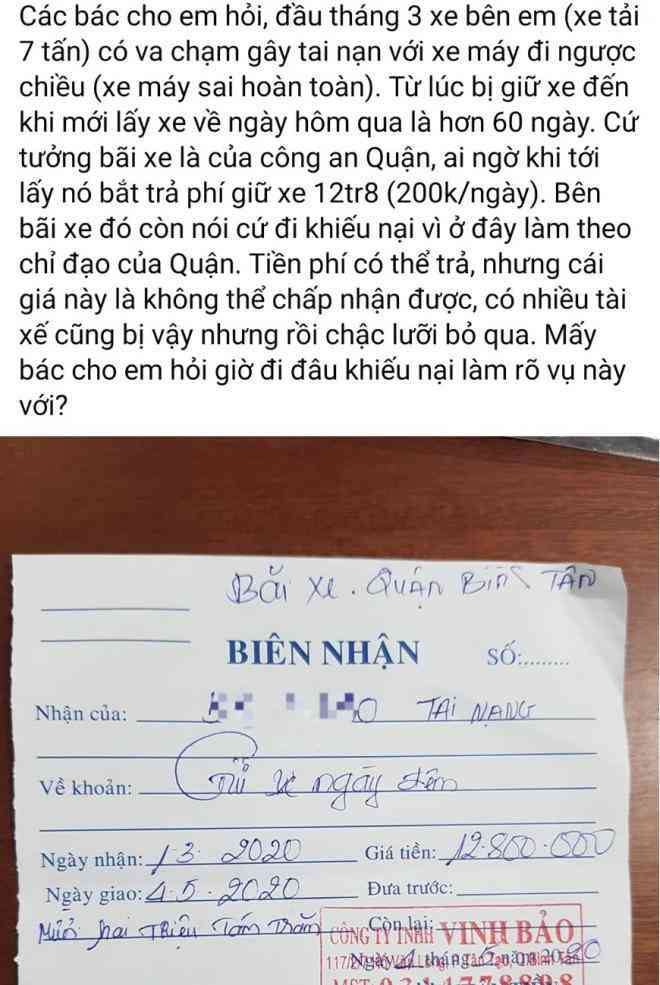 Các bác cho em hỏi, đầu tháng 3 xe bên em (xe tải
7 tấn) có va chạm gây tai nạn với xe máy đi ngược
chiều (xe máy sai hoàn toàn). Từ lúc bị giữ xe đến
khi mới lấy xe về ngày hôm qua là hơn 60 ngày. Cứ
tưởng bãi xe là của công an Quận, ai ngờ khi tới
lấy nó bắt trả phí giữ xe 12tr8 (200k/ngày). Bên
bãi xe đó còn nói cứ đi khiếu nại vì ở đây làm theo
chỉ đạo của Quận. Tiền phí có thể trả, nhưng cái
giá này là không thể chấp nhận được, có nhiều tài
xế cũng bị vậy nhưng rồi chậc lưỡi bỏ qua. Mấy
bác cho em hỏi giờ đi đâu khiếu nại làm rõ vụ này
với?
Bãi xe. QUẬN BìNh TÂN
BIÊN NHẬN SỐ:.........
Nhận của: TAi NANG
Về khoản: Giữ xe ngày đêm
Ngày nhận: 1.3.2020 Giá tiền: 12.800.000
Ngày giao: 4.5.2020 Đưa trước:
Mười hai Triệu Tám Trăm Còn lại:
CÔNG TY TNHH VINH BẢO
Ngày 4 tháng 5 năm 2020